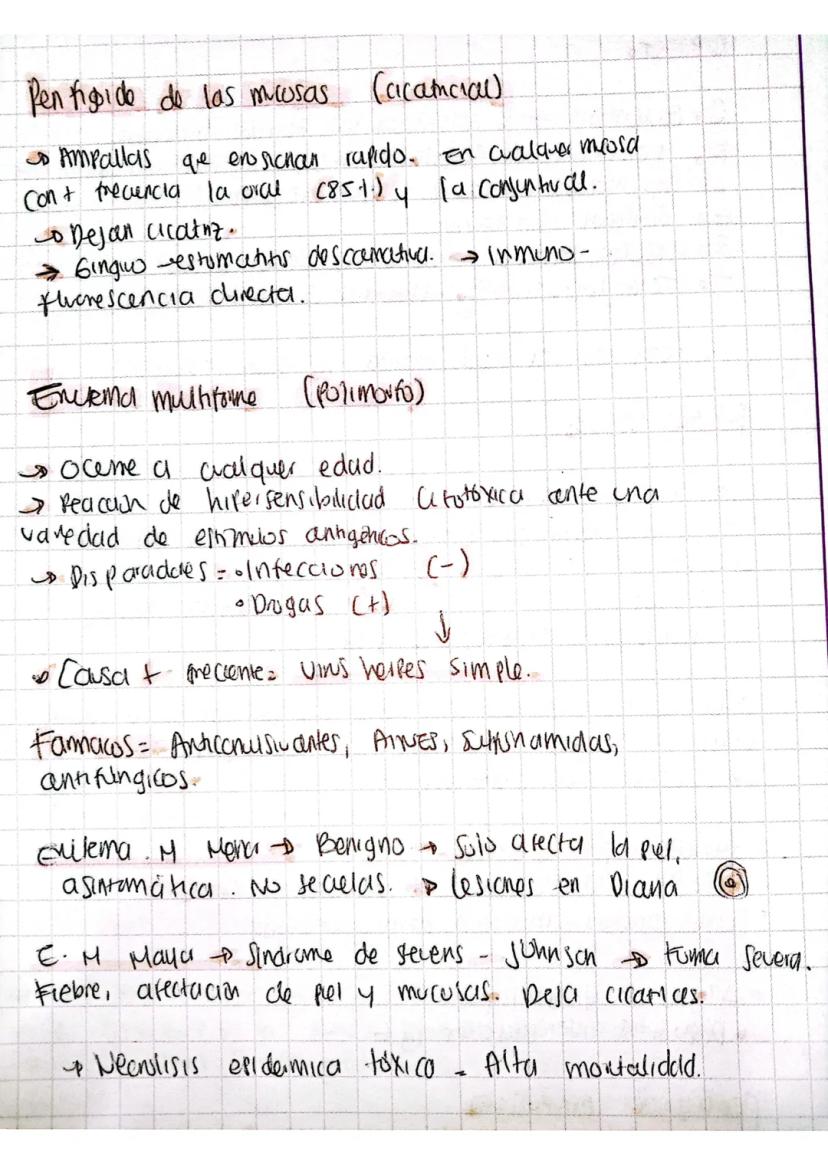 Penfigoide de las mucosas (cicatricial)
→ Ampallas que erosionan rapido. En cualquier mucosa
con + frecuencia la oral (85%) y la conjuntival.
→ Dejan cicatriz.
→ Gingivo-estomatitis descamativa. → Inmuno-
fluorescencia directa.
Eritema multiforme (polimorfo)
→ Ocurre a cualquier edad.
→ Reacción de hipersensibilidad citotóxica ante una
variedad de estímulos antigénicos.
→ Disparadores = • Infecciones (-)
• Drogas (+)
↓
→ Causa + frecuente = virus herpes simple.
Farmacos = Anticonvulsivantes, AINES, Sulfonamidas,
antifúngicos.
Eritema . M Menor → Benigno → Solo afecta la piel,
asintomática. No secuelas. → Lesiones en Diana
E. M Mayor → Sindrome de Stevens - Johnson → Forma Severa.
Fiebre, afectación de piel y mucosas. Deja cicatrices.
→ Necrolisis epidermica tóxico = Alta mortalidad.